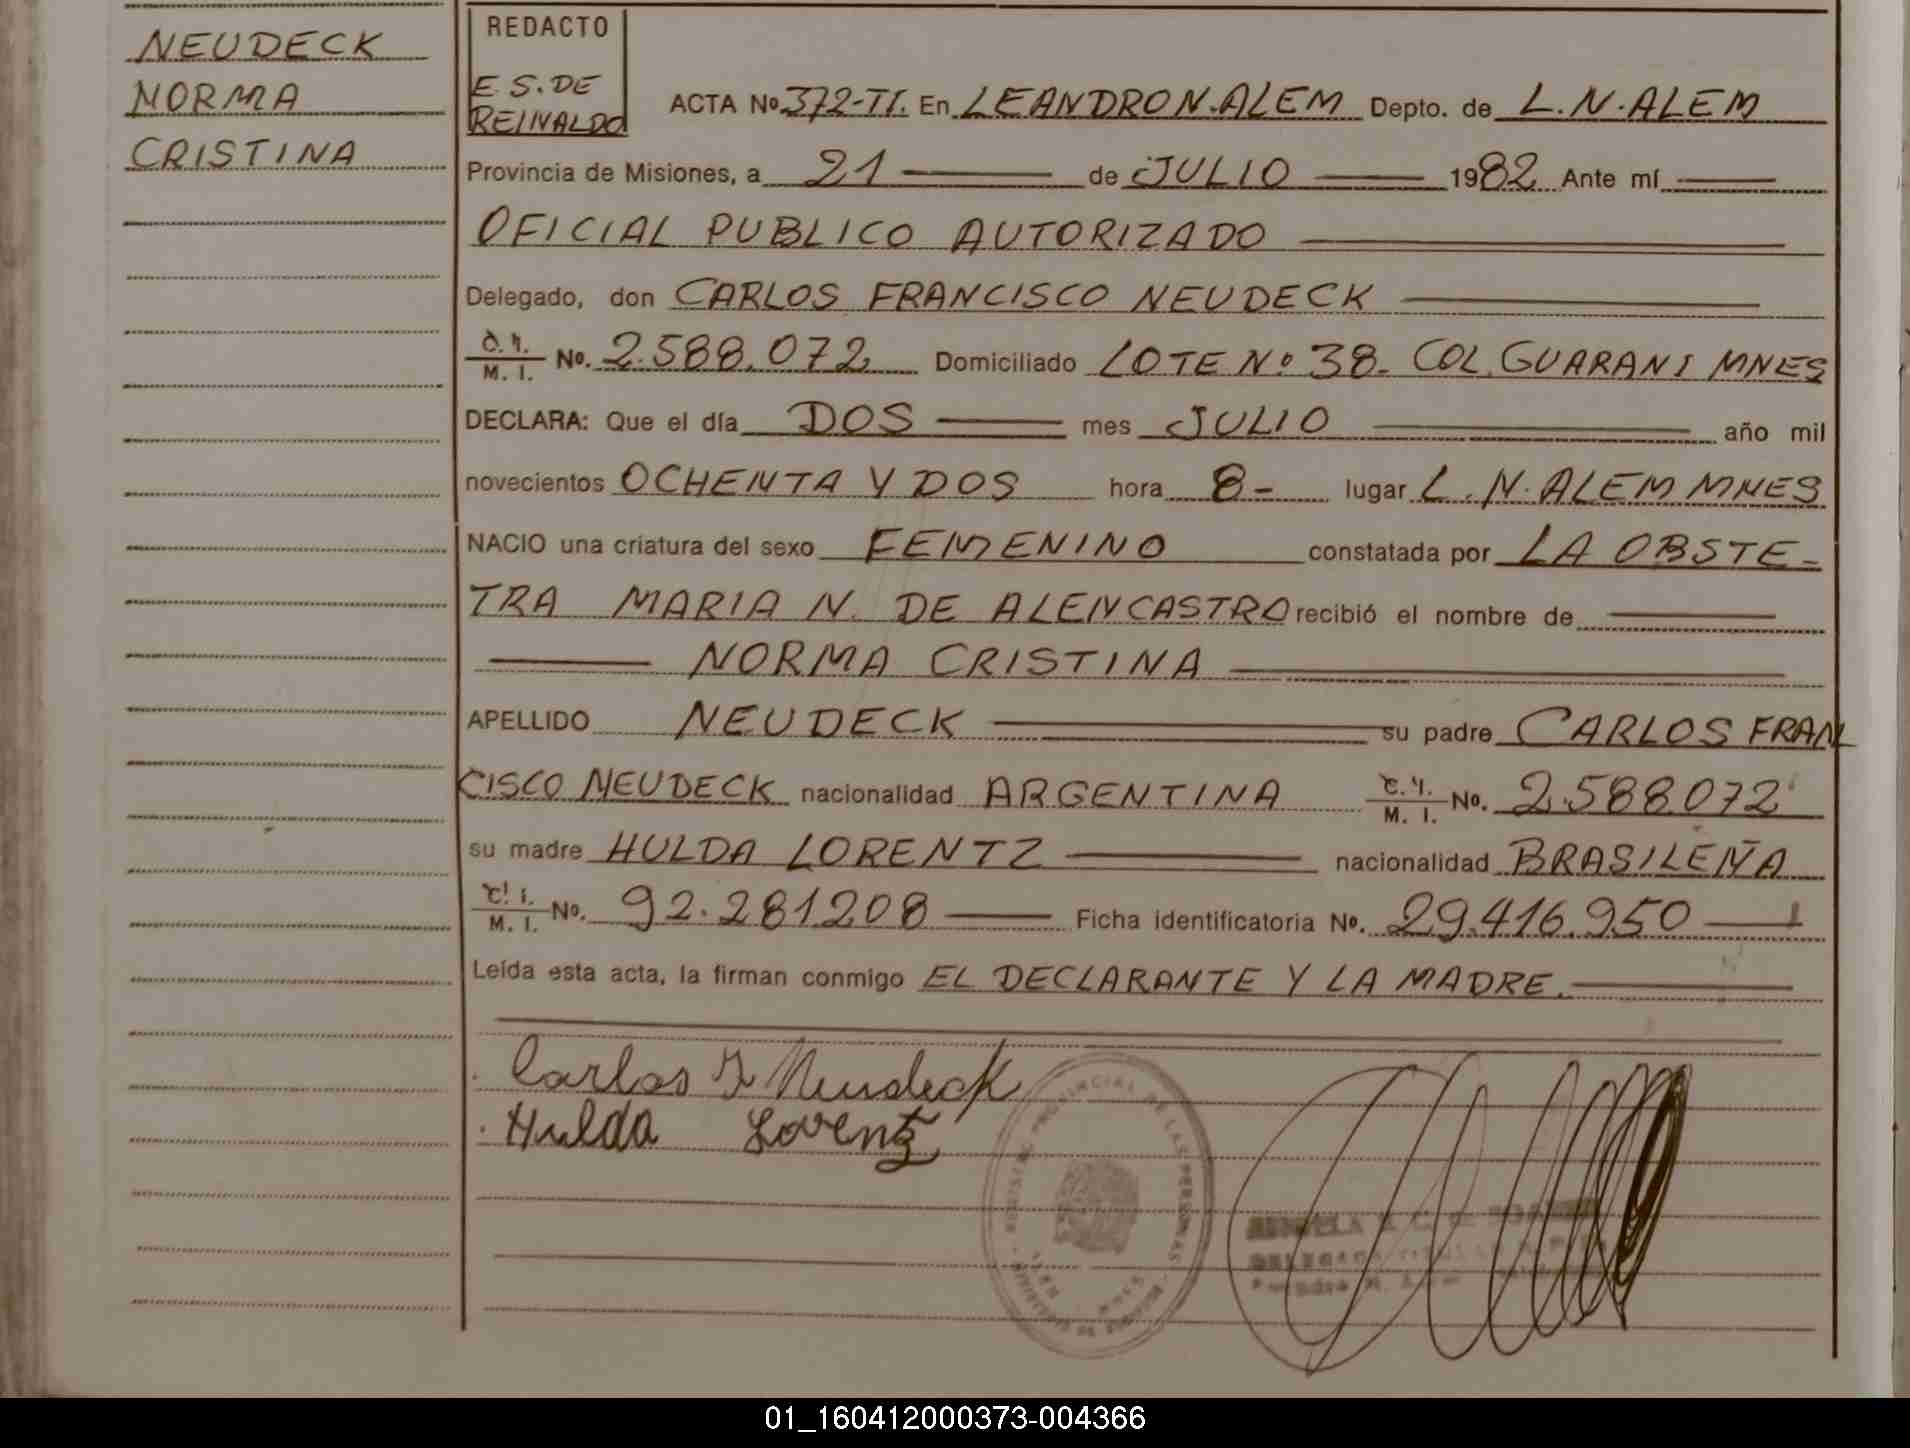 NEUDECK
NORMA
CRISTINA
REDACTO
E. S. DE
REINALDO
ACTA Nº 372-TI. En LEANDRO N. ALEM Depto. de L. N. ALEM
Provincia de Misiones, a 21 de JULIO 1982 Ante mí
OFICIAL PUBLICO AUTORIZADO
Delegado, don CARLOS FRANCISCO NEUDECK
M. I. No. 2.588.072 Domiciliado LOTE Nº 38- COL. GUARANI MNES
DECLARA: Que el día DOS mes JULIO año mil
novecientos OCHENTA Y DOS hora 8- lugar L. N. ALEM MNES
NACIO una criatura del sexo FEMENINO constatada por LA OBSTE-
TRA MARIA N. DE ALENCASTRO recibió el nombre de
NORMA CRISTINA
APELLIDO NEUDECK su padre CARLOS FRAN
CISCO NEUDECK nacionalidad ARGENTINA C. I. M. I. No. 2.588.072
su madre HULDA LORENTZ nacionalidad BRASILEÑA
C. I. M. I. No. 92.281208 Ficha identificatoria No. 29.416.950
Leída esta acta, la firman conmigo EL DECLARANTE Y LA MADRE.
Carlos F Neudeck
Hulda Lorentz
REGISTRO PROVINCIAL DE LAS PERSONAS
01_160412000373-004366